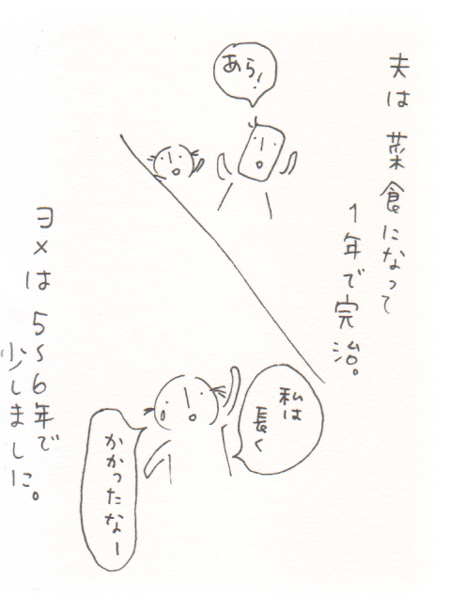 夫は 菜食になって
1年で完治。
あら!
ヨメは 5〜6年で
少しました。
私は
長く
かかったなー